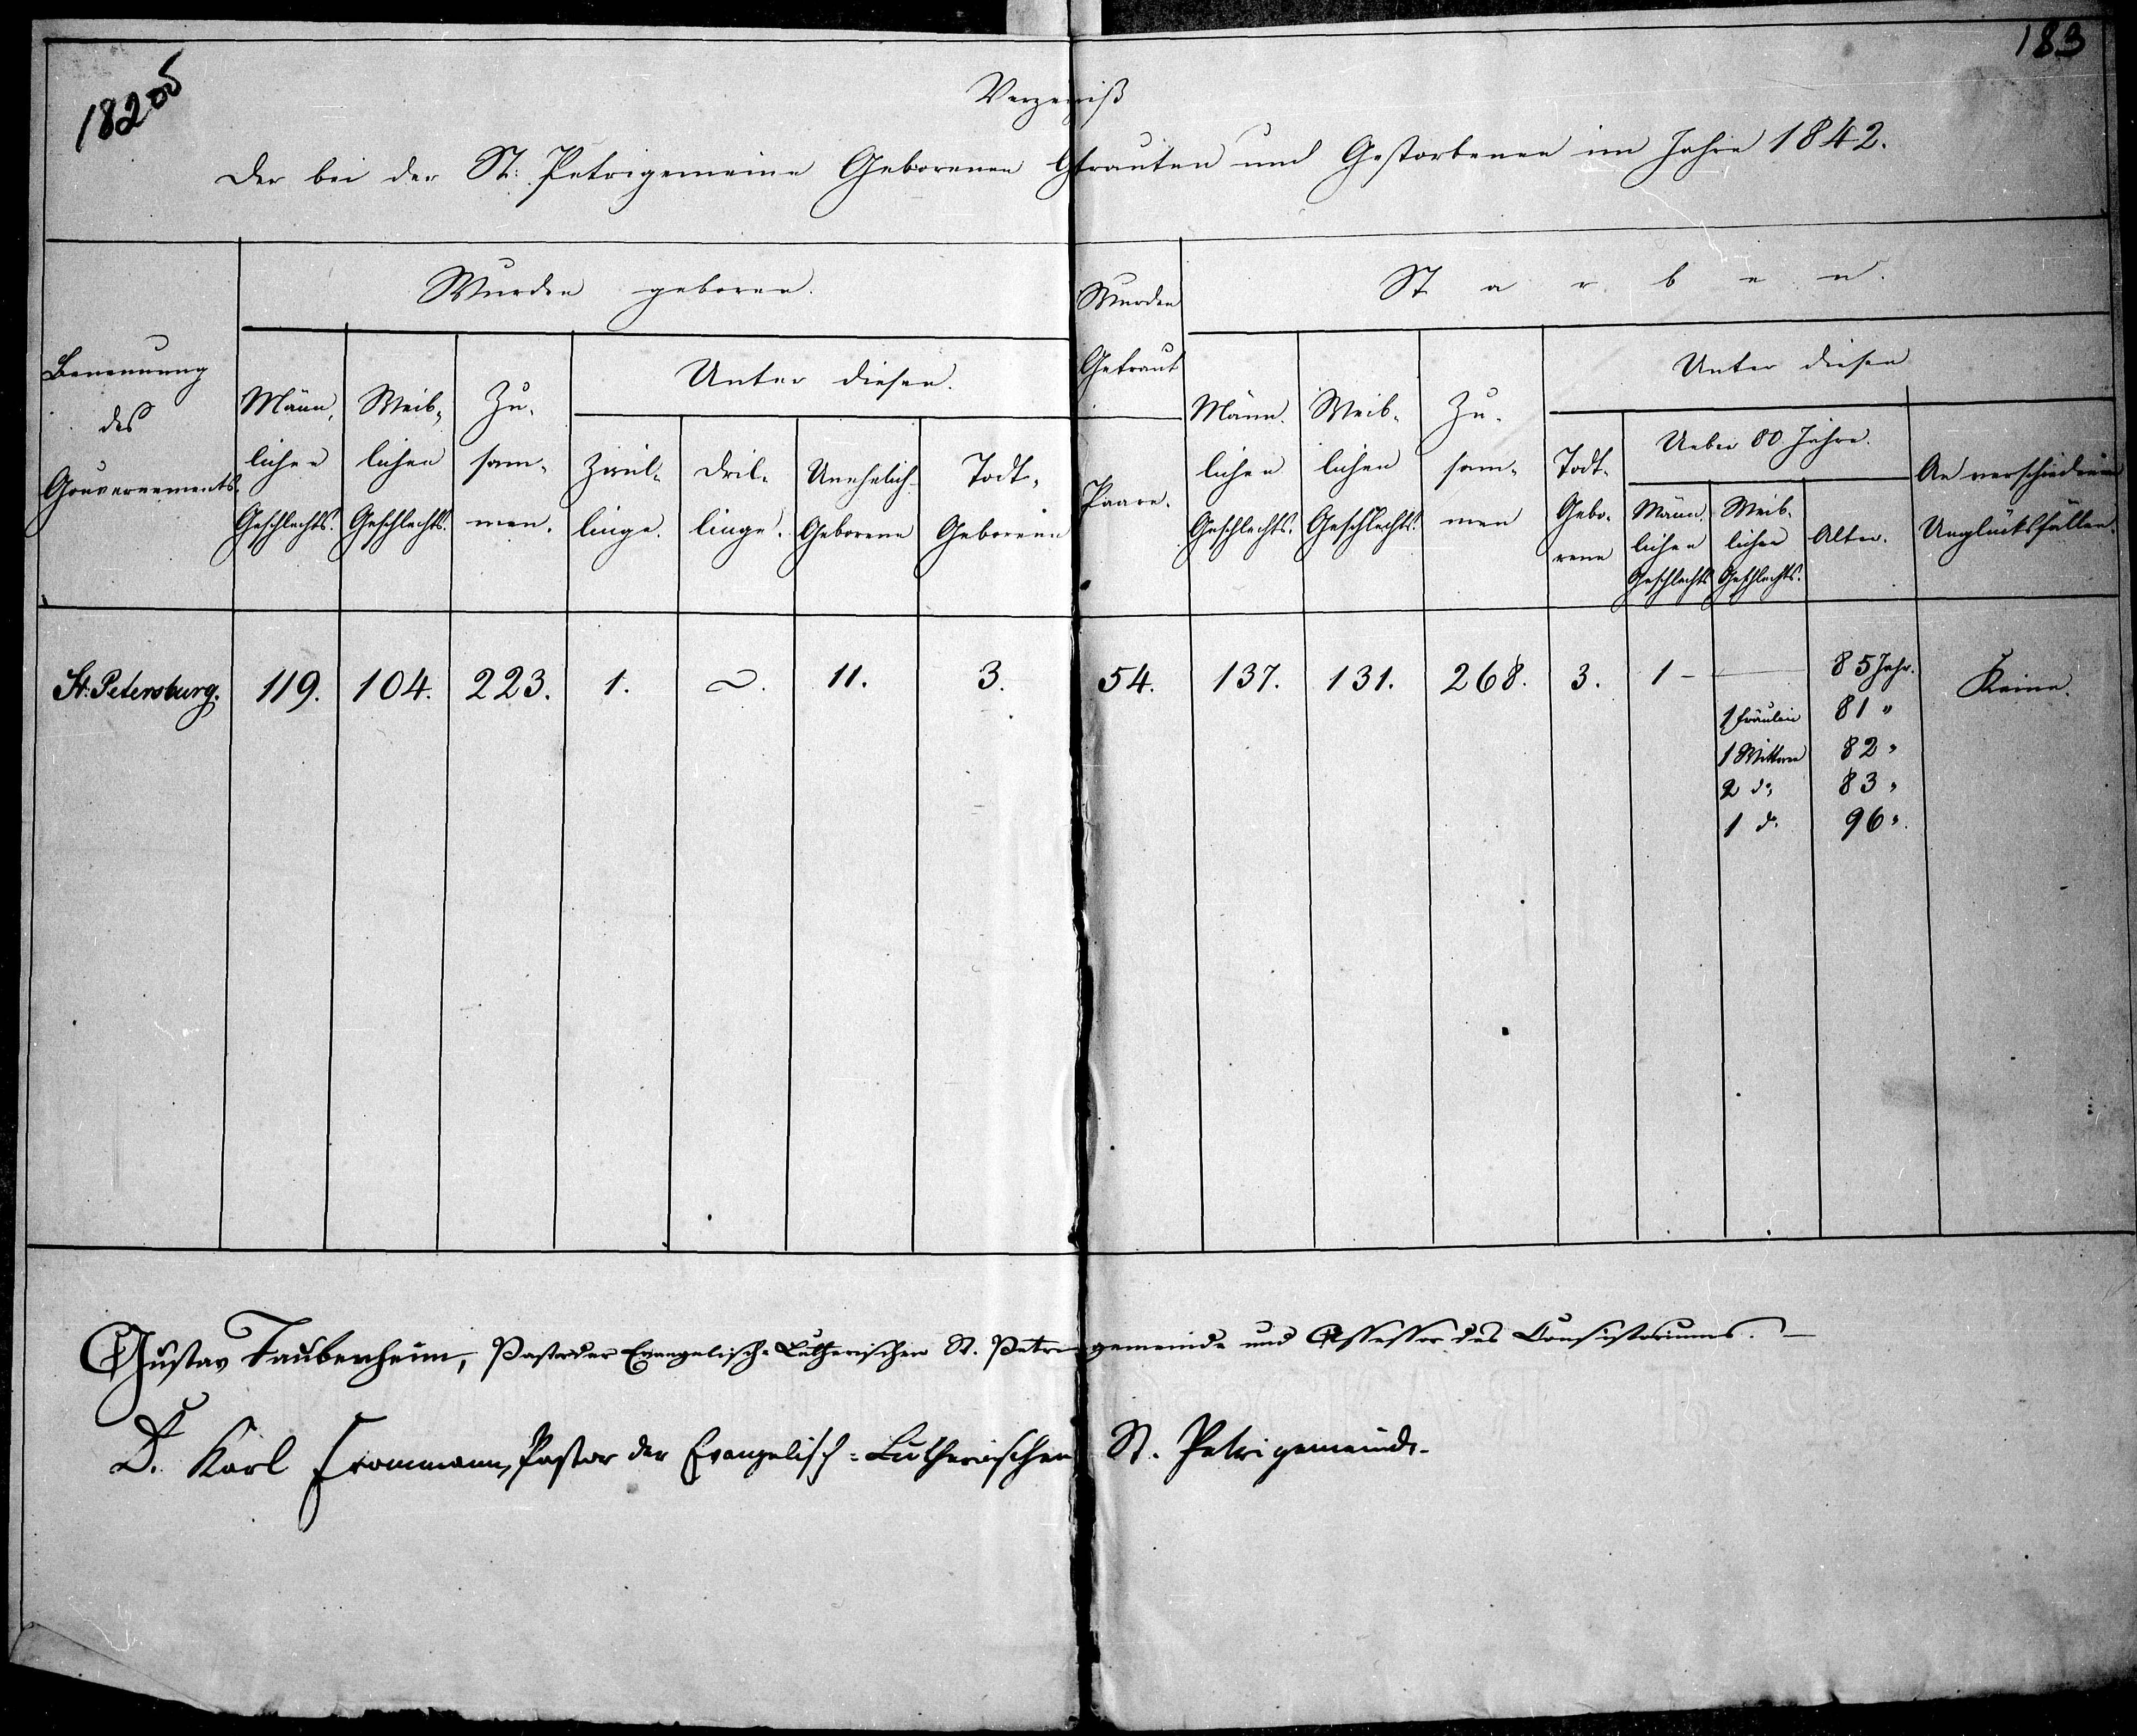 182 об
183
Verzeichniß
Der bei der St: Petrigemeine Geborenen Getrauten und Gestorbenen im Jahre 1842.
Benennung
des
Gouvernements.
Wurden geboren.
Männ-
lichen
Geschlechts.
Weib-
lichen
Geschlechts.
Zu-
sam-
men.
Unter diesen.
Zwil-
linge.
Dril-
linge.
Unehelich-
Geborene
Todt-
Geborene
Wurden
Getraut
Paare.
Starben.
Männ-
lichen
Geschlechts.
Weib-
lichen
Geschlechts.
Zu-
sam-
men
Unter diesen
Todt-
Gebo-
rene
Ueber 80 Jahre.
Männ-
lichen
Geschlechts
Weib-
lichen
Geschlechts.
Alter.
An verschiedenen
Unglücksfällen.
St: Petersburg. 119. 104. 223. 1. 11. 3. 54. 137. 131. 268. 3. 1 — 85 Jahr. Keine.
1 Fräulein 81 "
1 Wittwe 82 "
2 do 83 "
1 do 96 "
Gustav Taubenheim, Pastor der Evangelisch-Lutherischen St. Petri gemeinde und Assessor des Consistoriums. —
D. Karl Frommann, Pastor der Evangelisch-Lutherischen St. Petrigemeinde.